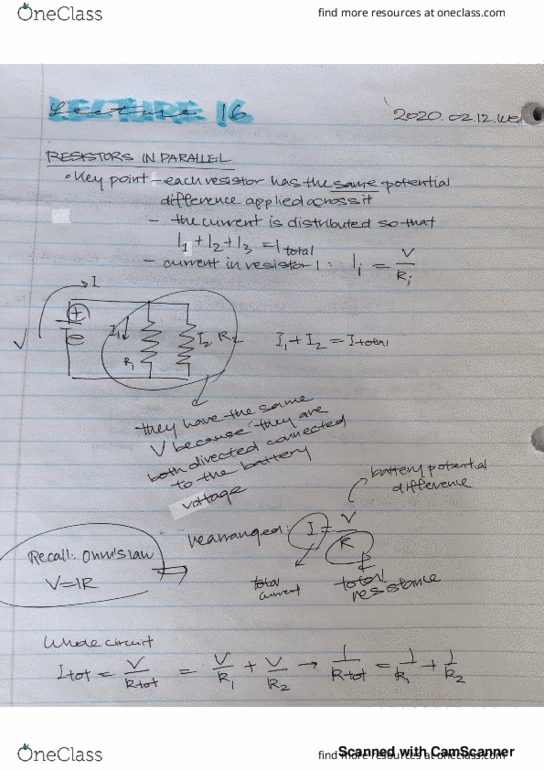 OneClass
find more resources at oneclass.com
Lecture 16
2020.02.12.wed
RESISTORS IN PARALLEL
• Key point - each resistor has the same potential
difference applied across it
- the current is distributed so that
I1 + I2 + I3 = I total
- current in resistor i : Ii = V/Ri
I
+
V
I1
R1
I2 R2
I1 + I2 = Itotal
they have the same
V because they are
both directed connected
to the battery
voltage
battery potential
difference
Recall: Ohm's law
V=IR
rearranged: I = V/R
total
current
total
resistance
Whole circuit
Itot = V/Rtot = V/R1 + V/R2 → 1/Rtot = 1/R1 + 1/R2
OneClass
find more resources at oneclass.com
Scanned with CamScanner